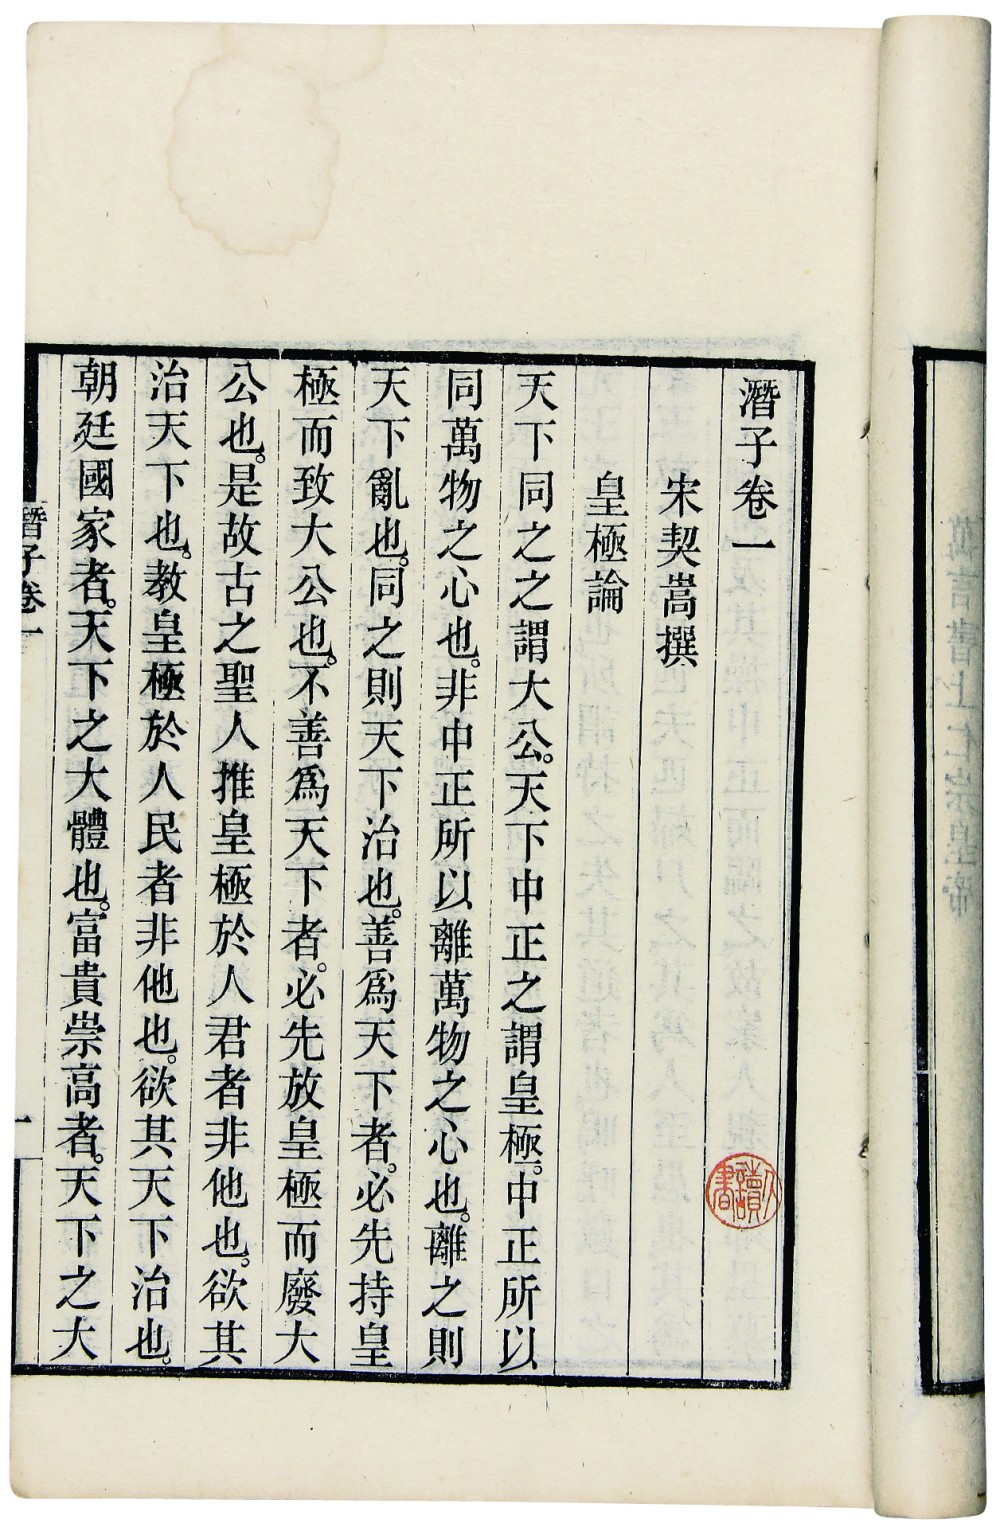 潛子卷一
宋契嵩撰
皇極論
天下同之之謂大公。天下中正之謂皇極。中正所以
同萬物之心也。非中正所以離萬物之心也。離之則
天下亂也。同之則天下治也。善爲天下者。必先持皇
極而致大公也。不善爲天下者。必先放皇極而廢大
公也。是故古之聖人推皇極於人君者非他也。欲其
治天下也。教皇極於人民者非他也。欲其天下治也。
朝廷國家者。天下之大體也。富貴崇高者。天下之大
潛子卷一
一